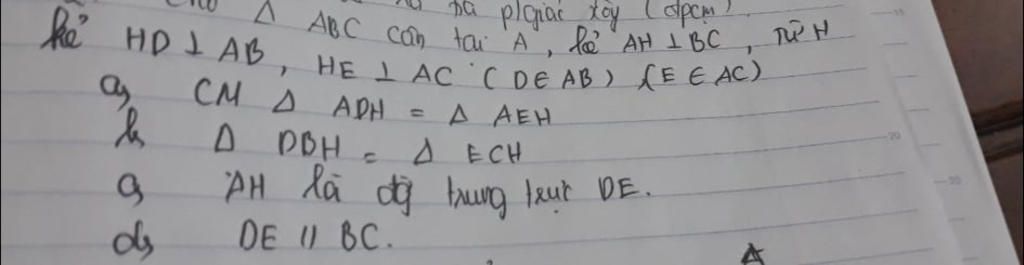 ba p/giác này (đpcm)
Cho Δ ABC cân tại A, kẻ AH ⊥ BC, Từ H
kẻ HD ⊥ AB, HE ⊥ AC (D ∈ AB) (E ∈ AC)
a, CM Δ ADH = Δ AEH
b, Δ DBH = Δ ECH
c, AH là đg trung trực DE.
d, DE // BC.
A